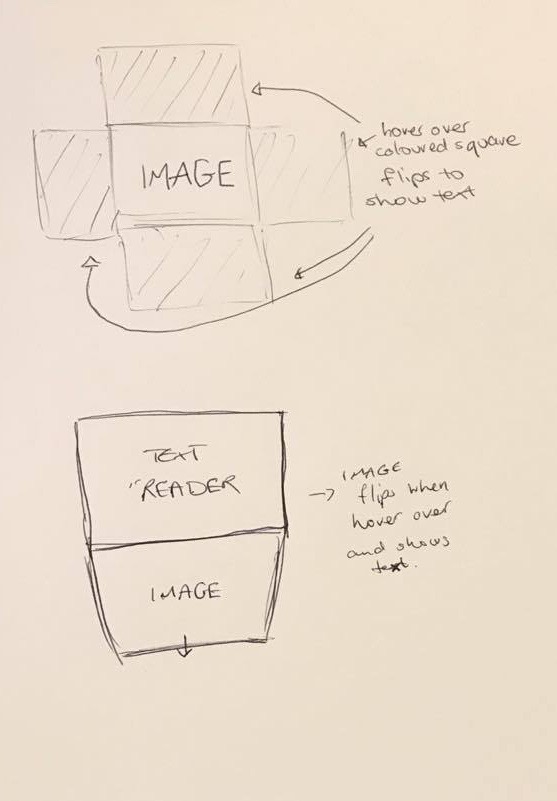 IMAGE
hover over
coloured square
flips to
show text
TEXT
"READER
IMAGE
→ IMAGE
flips when
hover over
and shows
text.